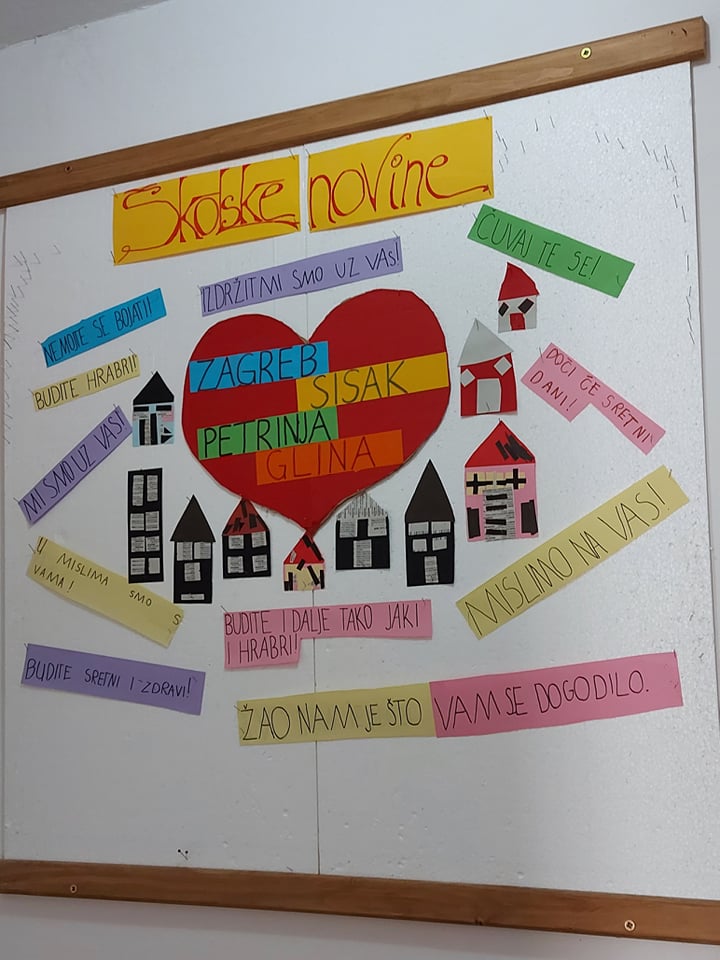 Školske novine
ČUVAJTE SE!
IZDRŽITMI SMO UZ VAS!
NEMOJTE SE BOJATI!
BUDITE HRABRI!
MI SMO UZ VAS!
ZAGREB
SISAK
PETRINJA
GLINA
DOĆI ĆE SRETNI
DANI!
U MISLIMA SMO S
VAMA!
MISLIMO NA VAS!
BUDITE I DALJE TAKO JAKI
I HRABRI!
BUDITE SRETNI I ZDRAVI!
ŽAO NAM JE ŠTO VAM SE DOGODILO.